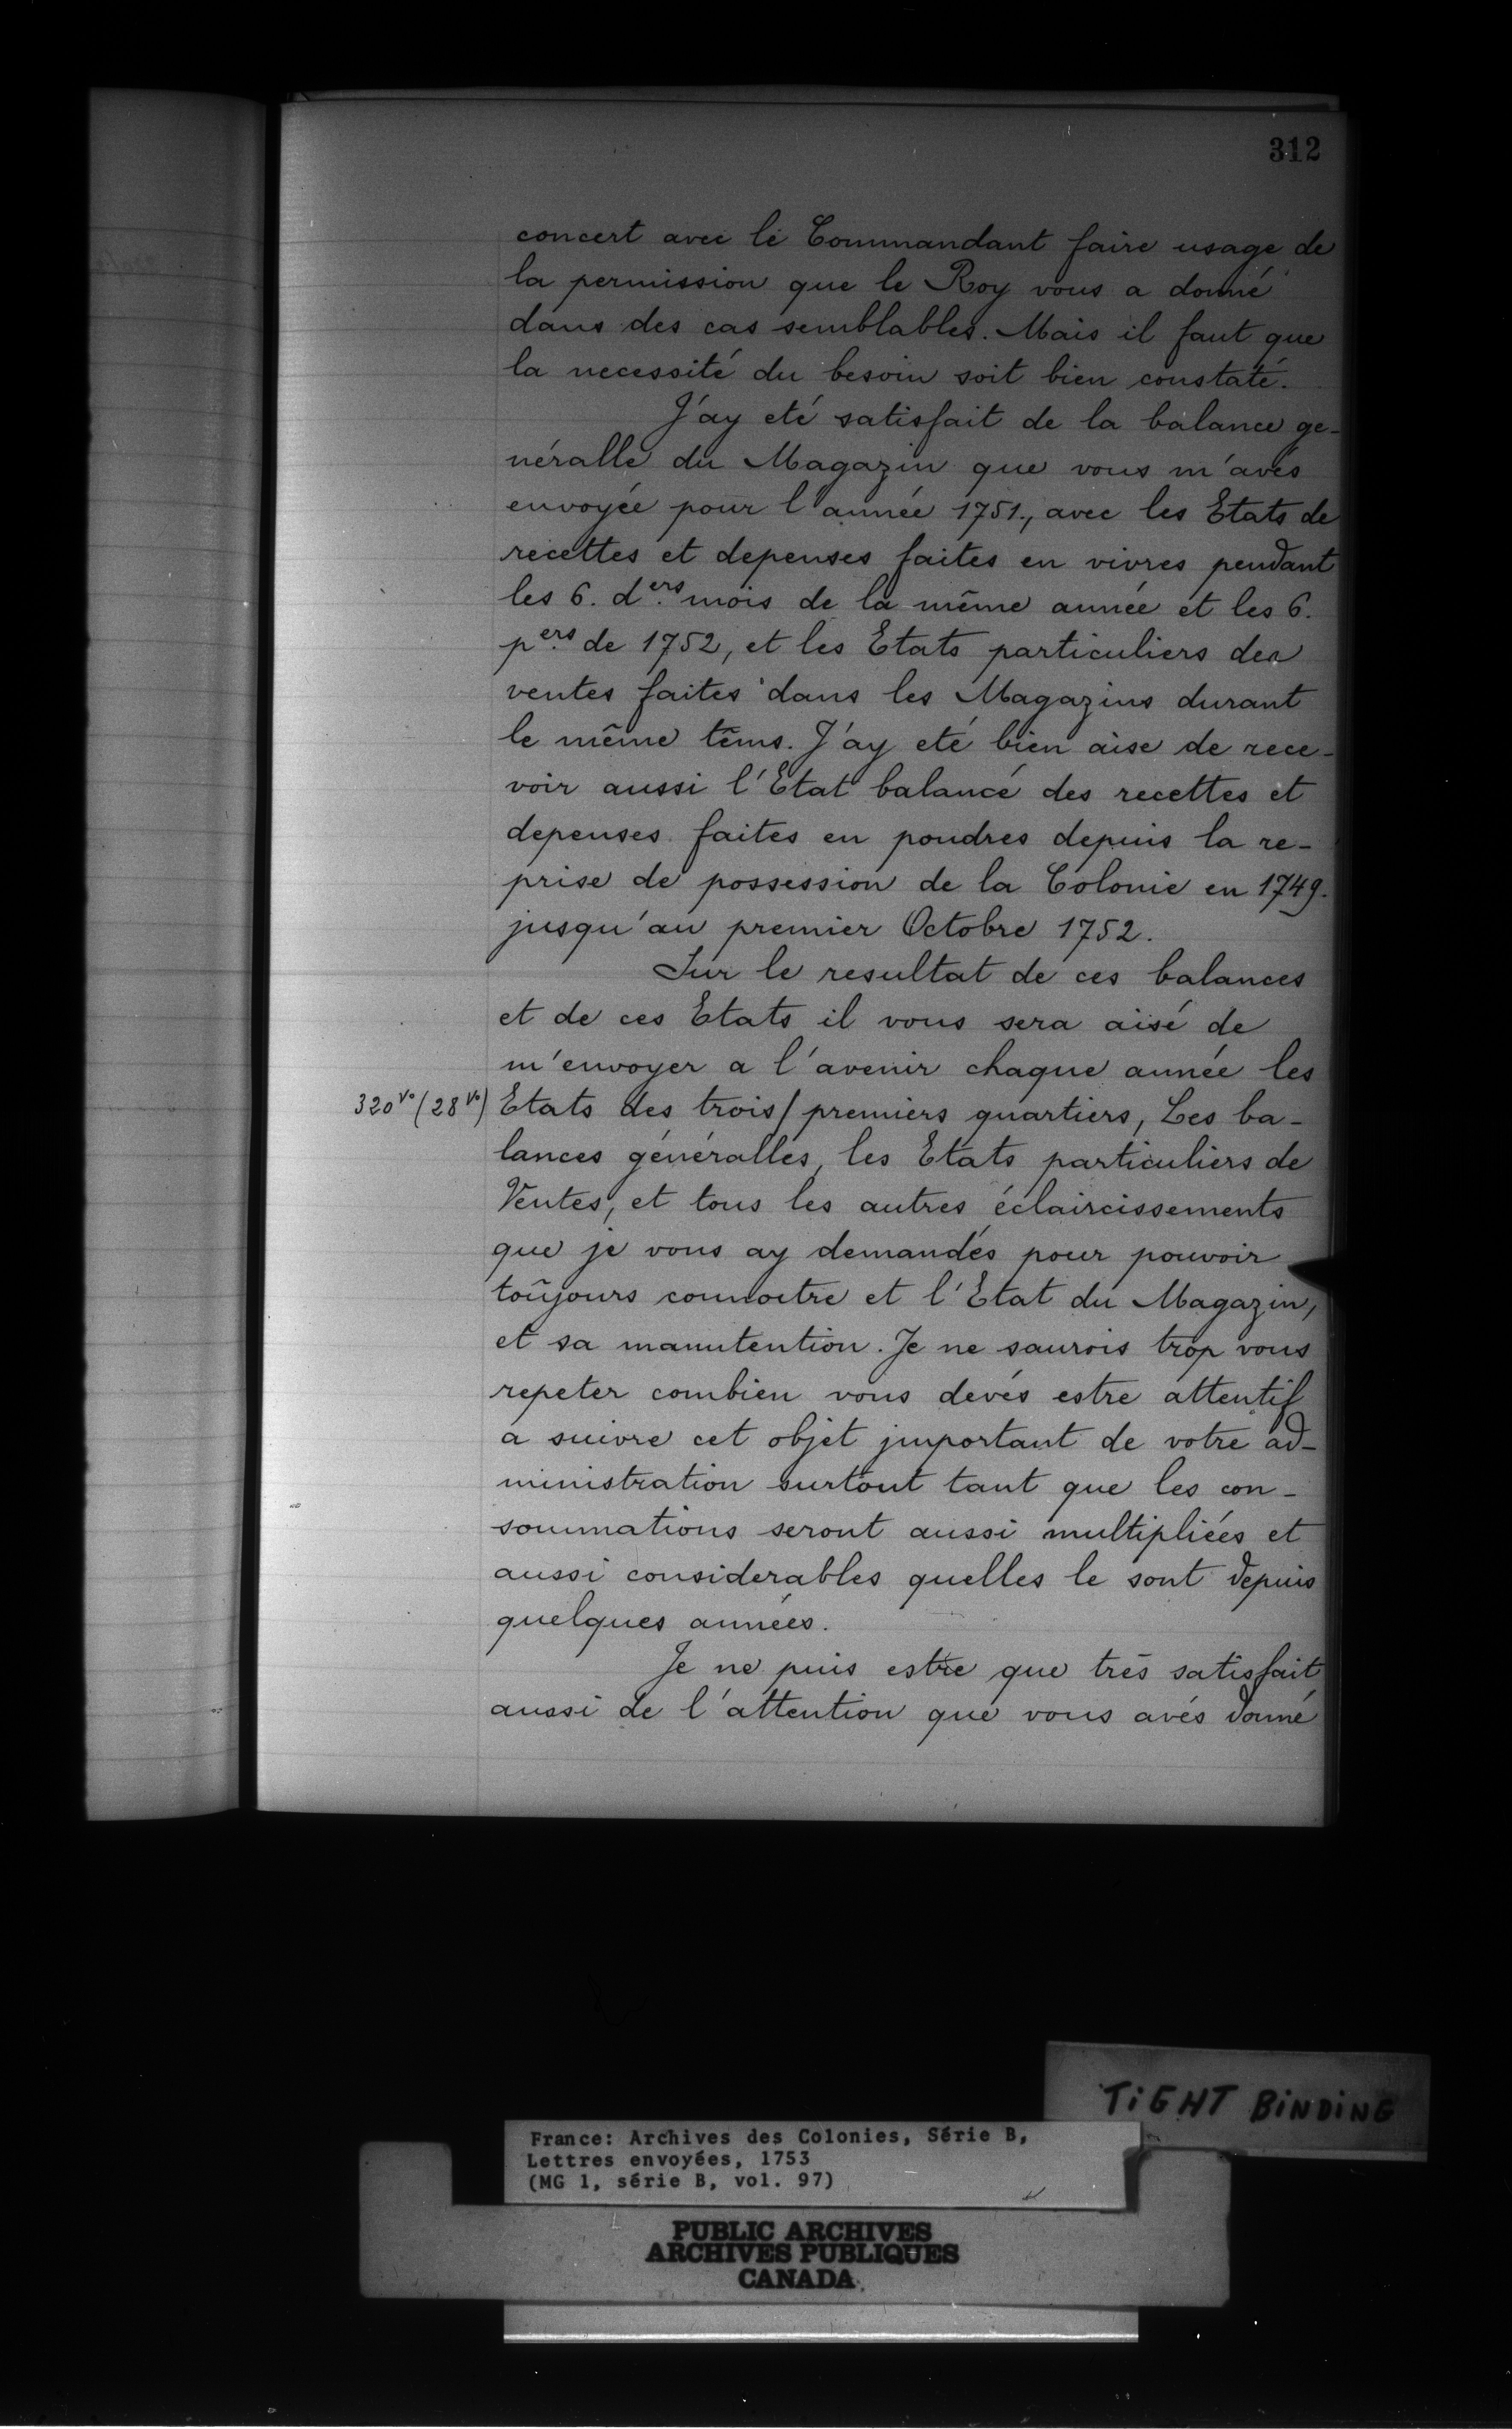 312
concert avec le Commandant faire usage de
la permission que le Roy vous a donné
dans des cas semblables. Mais il faut que
la necessité du besoin soit bien constaté.
J'ay eté satisfait de la balance ge-
néralle du Magazin que vous m'avés
envoyée pour l'année 1751., avec les Etats de
recettes et depenses faites en vivres pendant
les 6. d.ers mois de la même année et les 6.
p.ers de 1752, et les Etats particuliers des
ventes faites dans les Magazins durant
le même têms. J'ay eté bien aise de rece-
voir aussi l'Etat balancé des recettes et
depenses faites en poudres depuis la re-
prise de possession de la Colonie en 1749.
jusqu'au premier Octobre 1752.
Sur le resultat de ces balances
et de ces Etats il vous sera aisé de
m'envoyer a l'avenir chaque année les
320 vo (28 vo) Etats des trois/premiers quartiers, Les ba-
lances généralles, les Etats particuliers de
Ventes, et tous les autres éclaircissements
que je vous ay demandés pour pouvoir
toûjours connoitre et l'Etat du Magazin,
et sa manutention. Je ne saurois trop vous
repeter combien vous devés estre attentif
a suivre cet objet jmportant de votre ad-
ministration surtout tant que les con-
sommations seront aussi multipliées et
aussi considerables quelles le sont depuis
quelques années.
Je ne puis estre que trés satisfait
aussi de l'attention que vous avés donné
TIGHT BINDING
France: Archives des Colonies, Série B,
Lettres envoyées, 1753
(MG 1, série B, vol. 97)
PUBLIC ARCHIVES
ARCHIVES PUBLIQUES
CANADA